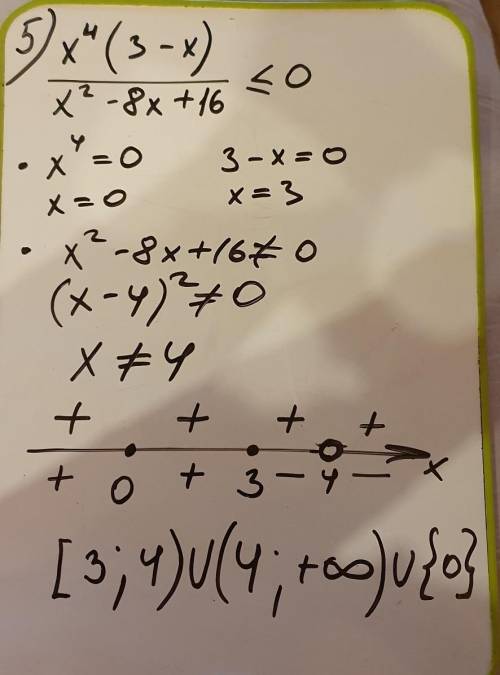 5) x⁴(3-x) / x²-8x+16 ≤ 0
• x⁴=0 3-x=0
x=0 x=3
• x²-8x+16≠0
(x-4)²≠0
x≠4
+ + + +
+ 0 + 3 - 4 - x
[3;4)∪(4;+∞)∪{0}